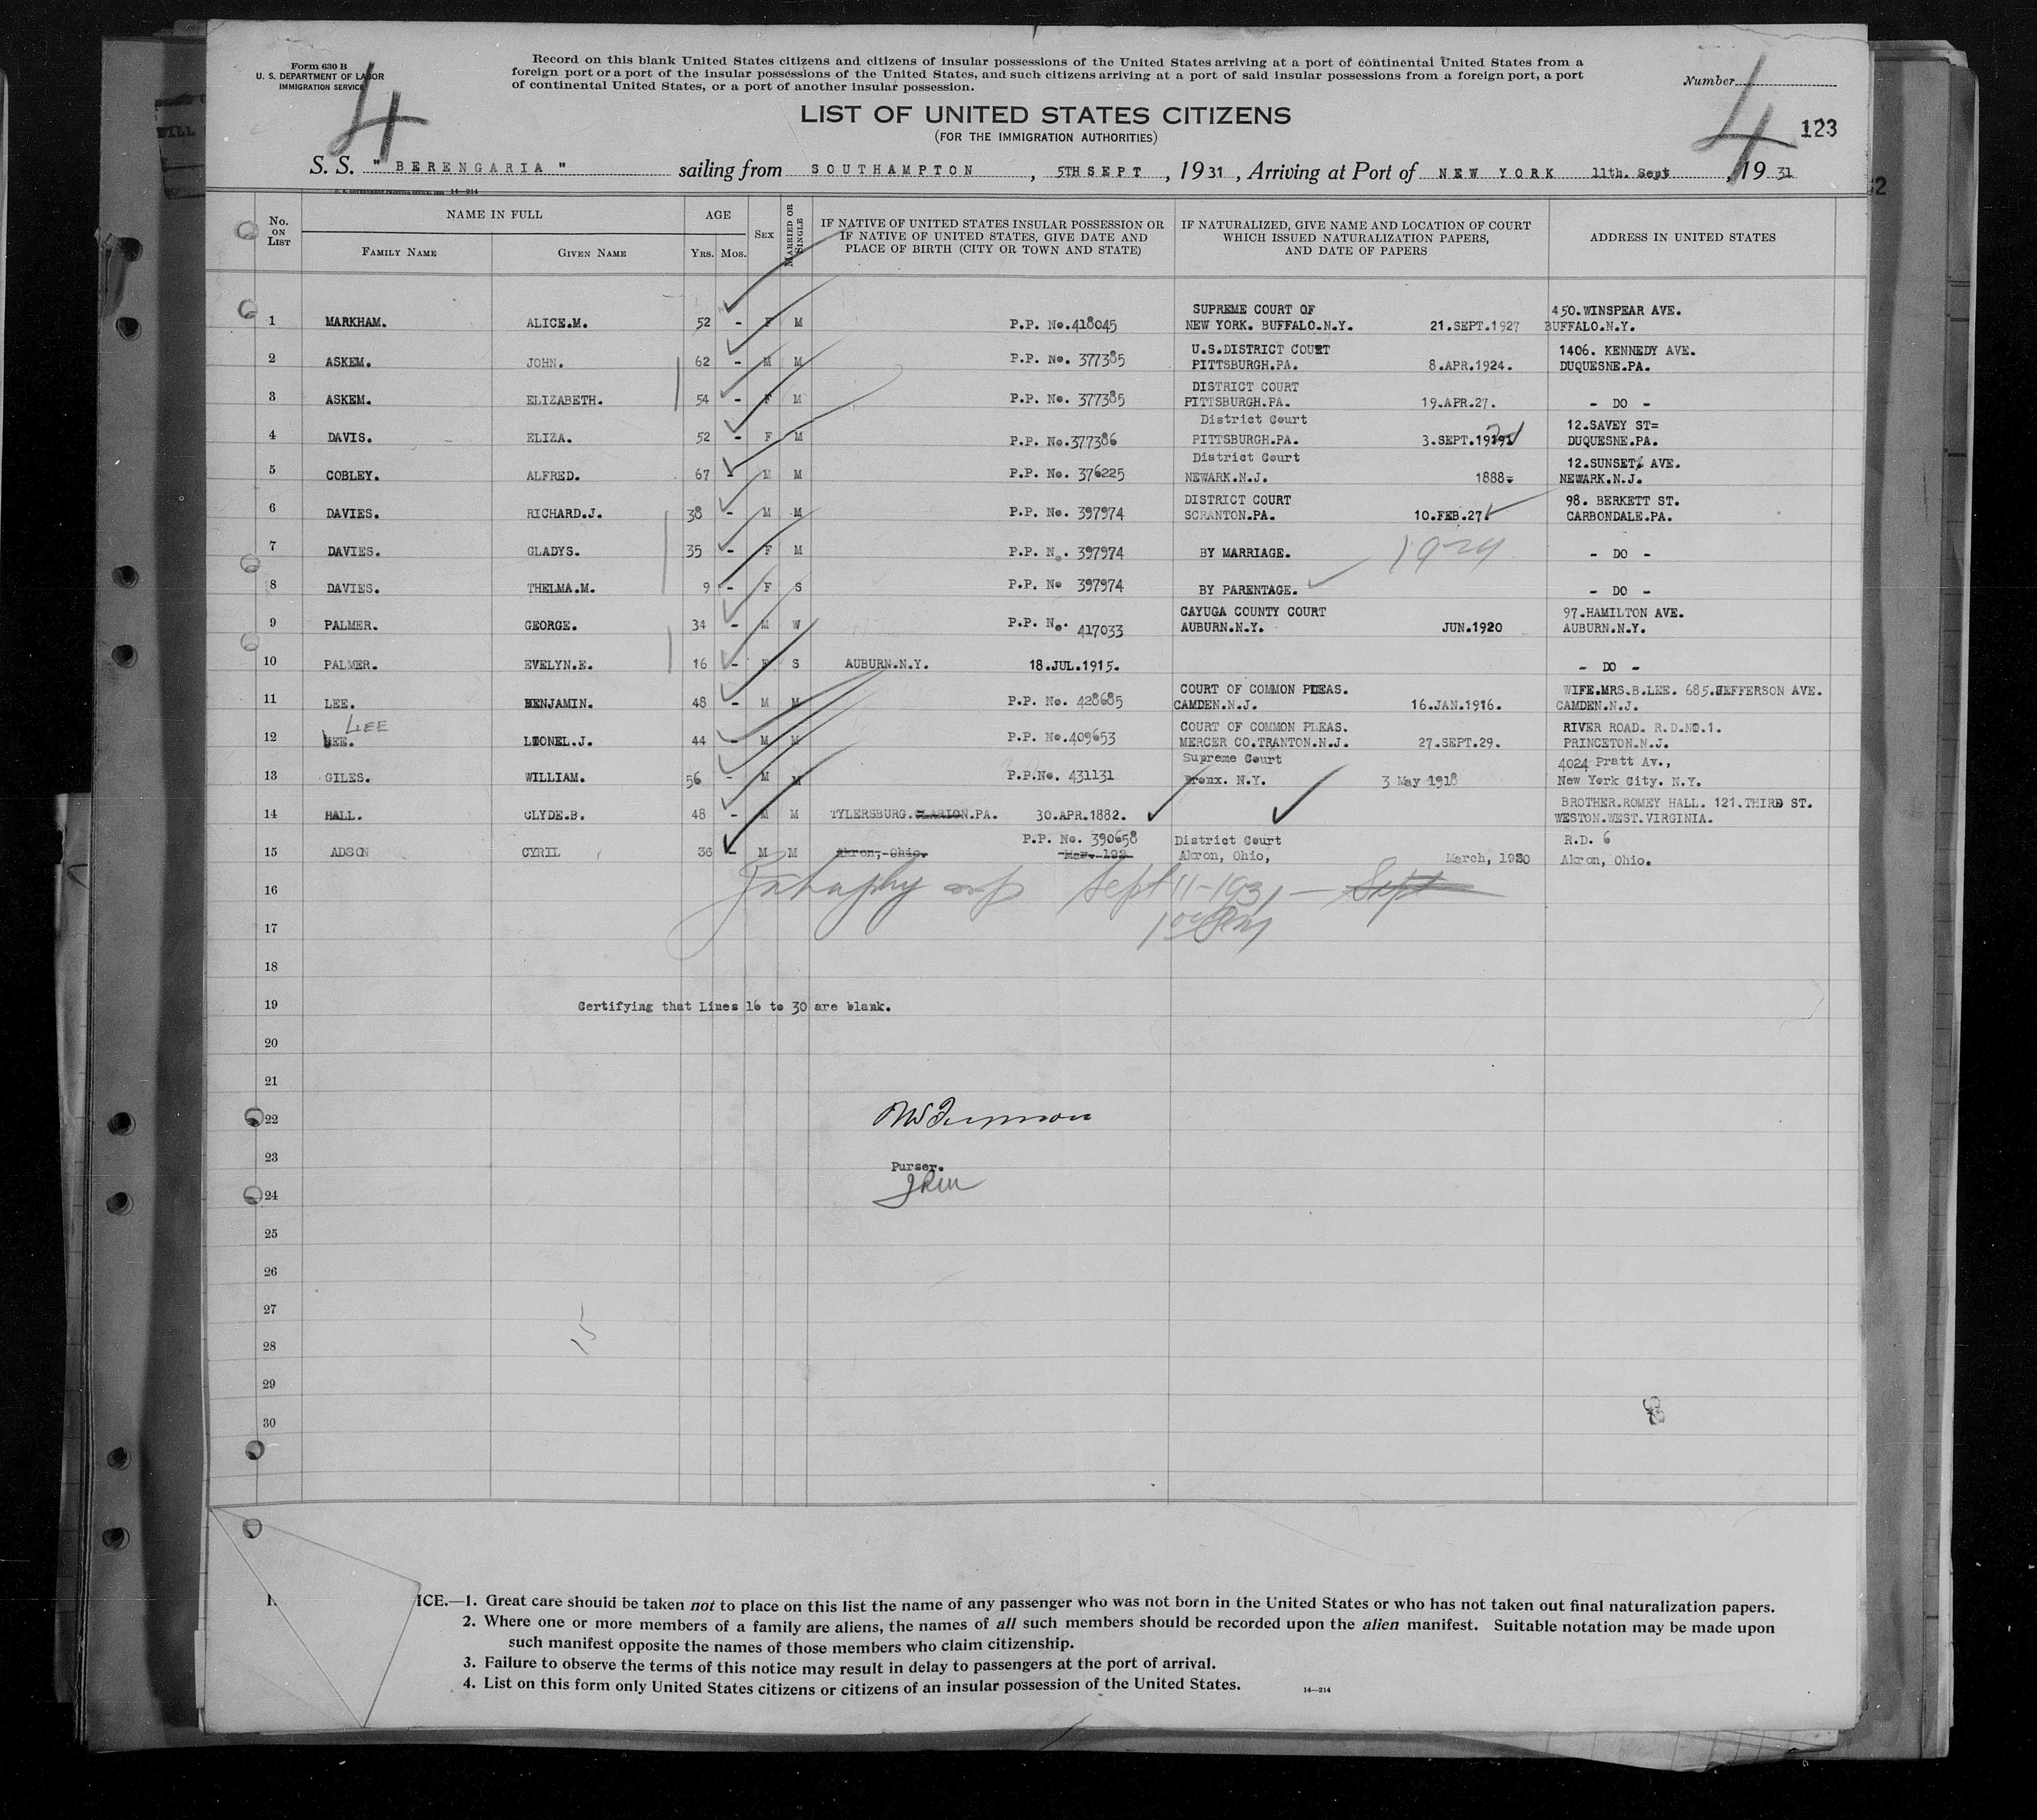 Form 630 B
U. S. DEPARTMENT OF LABOR
IMMIGRATION SERVICE
4
Record on this blank United States citizens and citizens of insular possessions of the United States arriving at a port of continental United States from a
foreign port or a port of the insular possessions of the United States, and such citizens arriving at a port of said insular possessions from a foreign port, a port
of continental United States, or a port of another insular possession.
Number
4
123
LIST OF UNITED STATES CITIZENS
(FOR THE IMMIGRATION AUTHORITIES)
S. S. " BERENGARIA " sailing from SOUTHAMPTON, 5TH SEPT, 1931, Arriving at Port of NEW YORK 11th. Sept, 1931
14—214
No. ON LIST
NAME IN FULL
FAMILY NAME
GIVEN NAME
AGE
YRS. MOS.
SEX
MARRIED OR SINGLE
IF NATIVE OF UNITED STATES INSULAR POSSESSION OR
IF NATIVE OF UNITED STATES, GIVE DATE AND
PLACE OF BIRTH (CITY OR TOWN AND STATE)
IF NATURALIZED, GIVE NAME AND LOCATION OF COURT
WHICH ISSUED NATURALIZATION PAPERS,
AND DATE OF PAPERS
ADDRESS IN UNITED STATES
SUPREME COURT OF 450.WINSPEAR AVE.
1 MARKHAM. ALICE.M. 52 - F M P.P. No.418045 NEW YORK. BUFFALO.N.Y. 21.SEPT.1927 BUFFALO.N.Y.
U.S.DISTRICT COURT 1406. KENNEDY AVE.
2 ASKEM. JOHN. 62 - M M P.P. No. 377385 PITTSBURGH.PA. 8.APR.1924. DUQUESNE.PA.
DISTRICT COURT
3 ASKEM. ELIZABETH. 54 - F M P.P. No. 377385 PITTSBURGH.PA. 19.APR.27. - DO -
District Court 12.SAVEY ST=
4 DAVIS. ELIZA. 52 - F M P.P. No.377386 PITTSBURGH.PA. 3.SEPT. DUQUESNE.PA.
District Court 12.SUNSET. AVE.
5 COBLEY. ALFRED. 67 - M M P.P. No. 376225 NEWARK.N.J. 1888- NEWARK.N.J.
DISTRICT COURT 98. BERKETT ST.
6 DAVIES. RICHARD.J. 38 - M M P.P. No. 397974 SCRANTON.PA. 10.FEB.27. CARBONDALE.PA.
7 DAVIES. GLADYS. 35 - F M P.P. No. 397974 BY MARRIAGE. - DO -
8 DAVIES. THELMA.M. 9 - F S P.P. No 397974 BY PARENTAGE. - DO -
CAYUGA COUNTY COURT 97.HAMILTON AVE.
9 PALMER. GEORGE. 34 - M W P.P. No. 417033 AUBURN.N.Y. JUN.1920 AUBURN.N.Y.
10 PALMER. EVELYN.E. 16 - F S AUBURN.N.Y. 18.JUL.1915. - DO -
COURT OF COMMON PLEAS. WIFE.MRS.B.LEE. 685.JEFFERSON AVE.
11 LEE. BENJAMIN. 48 - M M P.P. No. 428685 CAMDEN.N.J. 16.JAN.1916. CAMDEN.N.J.
LEE COURT OF COMMON PLEAS. RIVER ROAD. R.D.NO.1.
12 LEE. LIONEL.J. 44 - M M P.P. No.409653 MERCER CO.TRANTON.N.J. 27.SEPT.29. PRINCETON.N.J.
Supreme Court 4024 Pratt Av.,
13 GILES. WILLIAM. 56 - M M P.P.No. 431131 Bronx. N.Y. 3 May 1918 New York City. N.Y.
BROTHER.ROMEY HALL. 121.THIRD ST.
14 HALL. CLYDE.B. 48 - M M TYLERSBURG.CLARION.PA. 30.APR.1882. WESTON.WEST.VIRGINIA.
P.P. No. 390658 District Court R.D. 6
15 ADSON CYRIL 36 - M M Akron, Ohio. Mar. 192 Akron, Ohio, March, 1920 Akron, Ohio.
16 Sept 11-1931 - Sept
17
18
19 Certifying that Lines 16 to 30 are blank.
20
21
22
23 Purser.
24
25
26
27
28 15
29
30
ICE.—1. Great care should be taken not to place on this list the name of any passenger who was not born in the United States or who has not taken out final naturalization papers.
2. Where one or more members of a family are aliens, the names of all such members should be recorded upon the alien manifest. Suitable notation may be made upon
such manifest opposite the names of those members who claim citizenship.
3. Failure to observe the terms of this notice may result in delay to passengers at the port of arrival.
4. List on this form only United States citizens or citizens of an insular possession of the United States.
14—214